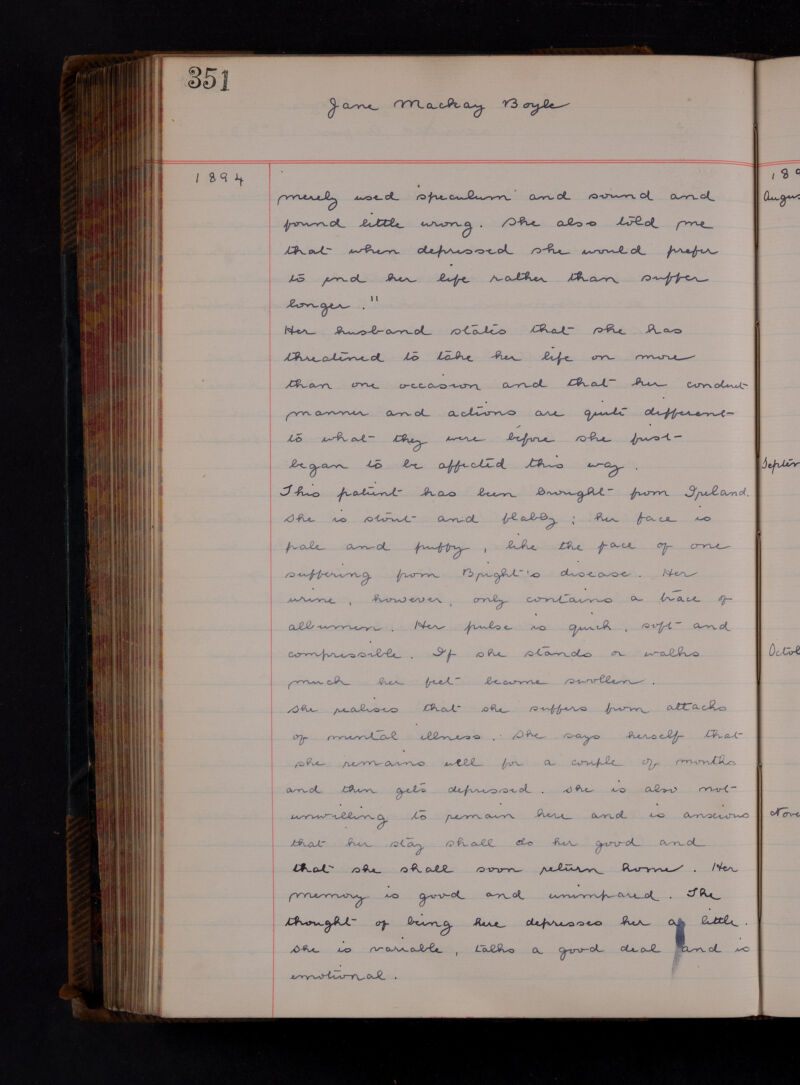 351
Jane Mackay Boyle
1894
merely used speculum and sound and
found little wrong. She also told me
that when depressed she would prefer
to end her life rather than suffer
longer."
Her husband states that she has
threatined to take her life on more
than one occasion and that her conduct
manner and actions are quite different
to what they were before she first
began to be affected this way.
This patient has been brought from Ireland.
She is stout and flabby ; her face is
pale and puffy , like the face of one
suffering from Bright's disease. Her
urine , however , only contains a trace of
albumen. Her pulse is quick , soft and
compressible. If she stands or walks
much her feet become swollen.
She realises that she suffers from attacks
of mental illness. She says herself that
she remains well for a couple of months
and then gets depressed. She is also not
unwilling to remain here and is anxious
that her stay shall do her good and
that she shall soon return home. Her
memory is good and unimpared. The
thought of being here depresses her a little.
She is variable , talks a good deal and is
emotional.
189
Augus
Septem
Octob
Nove